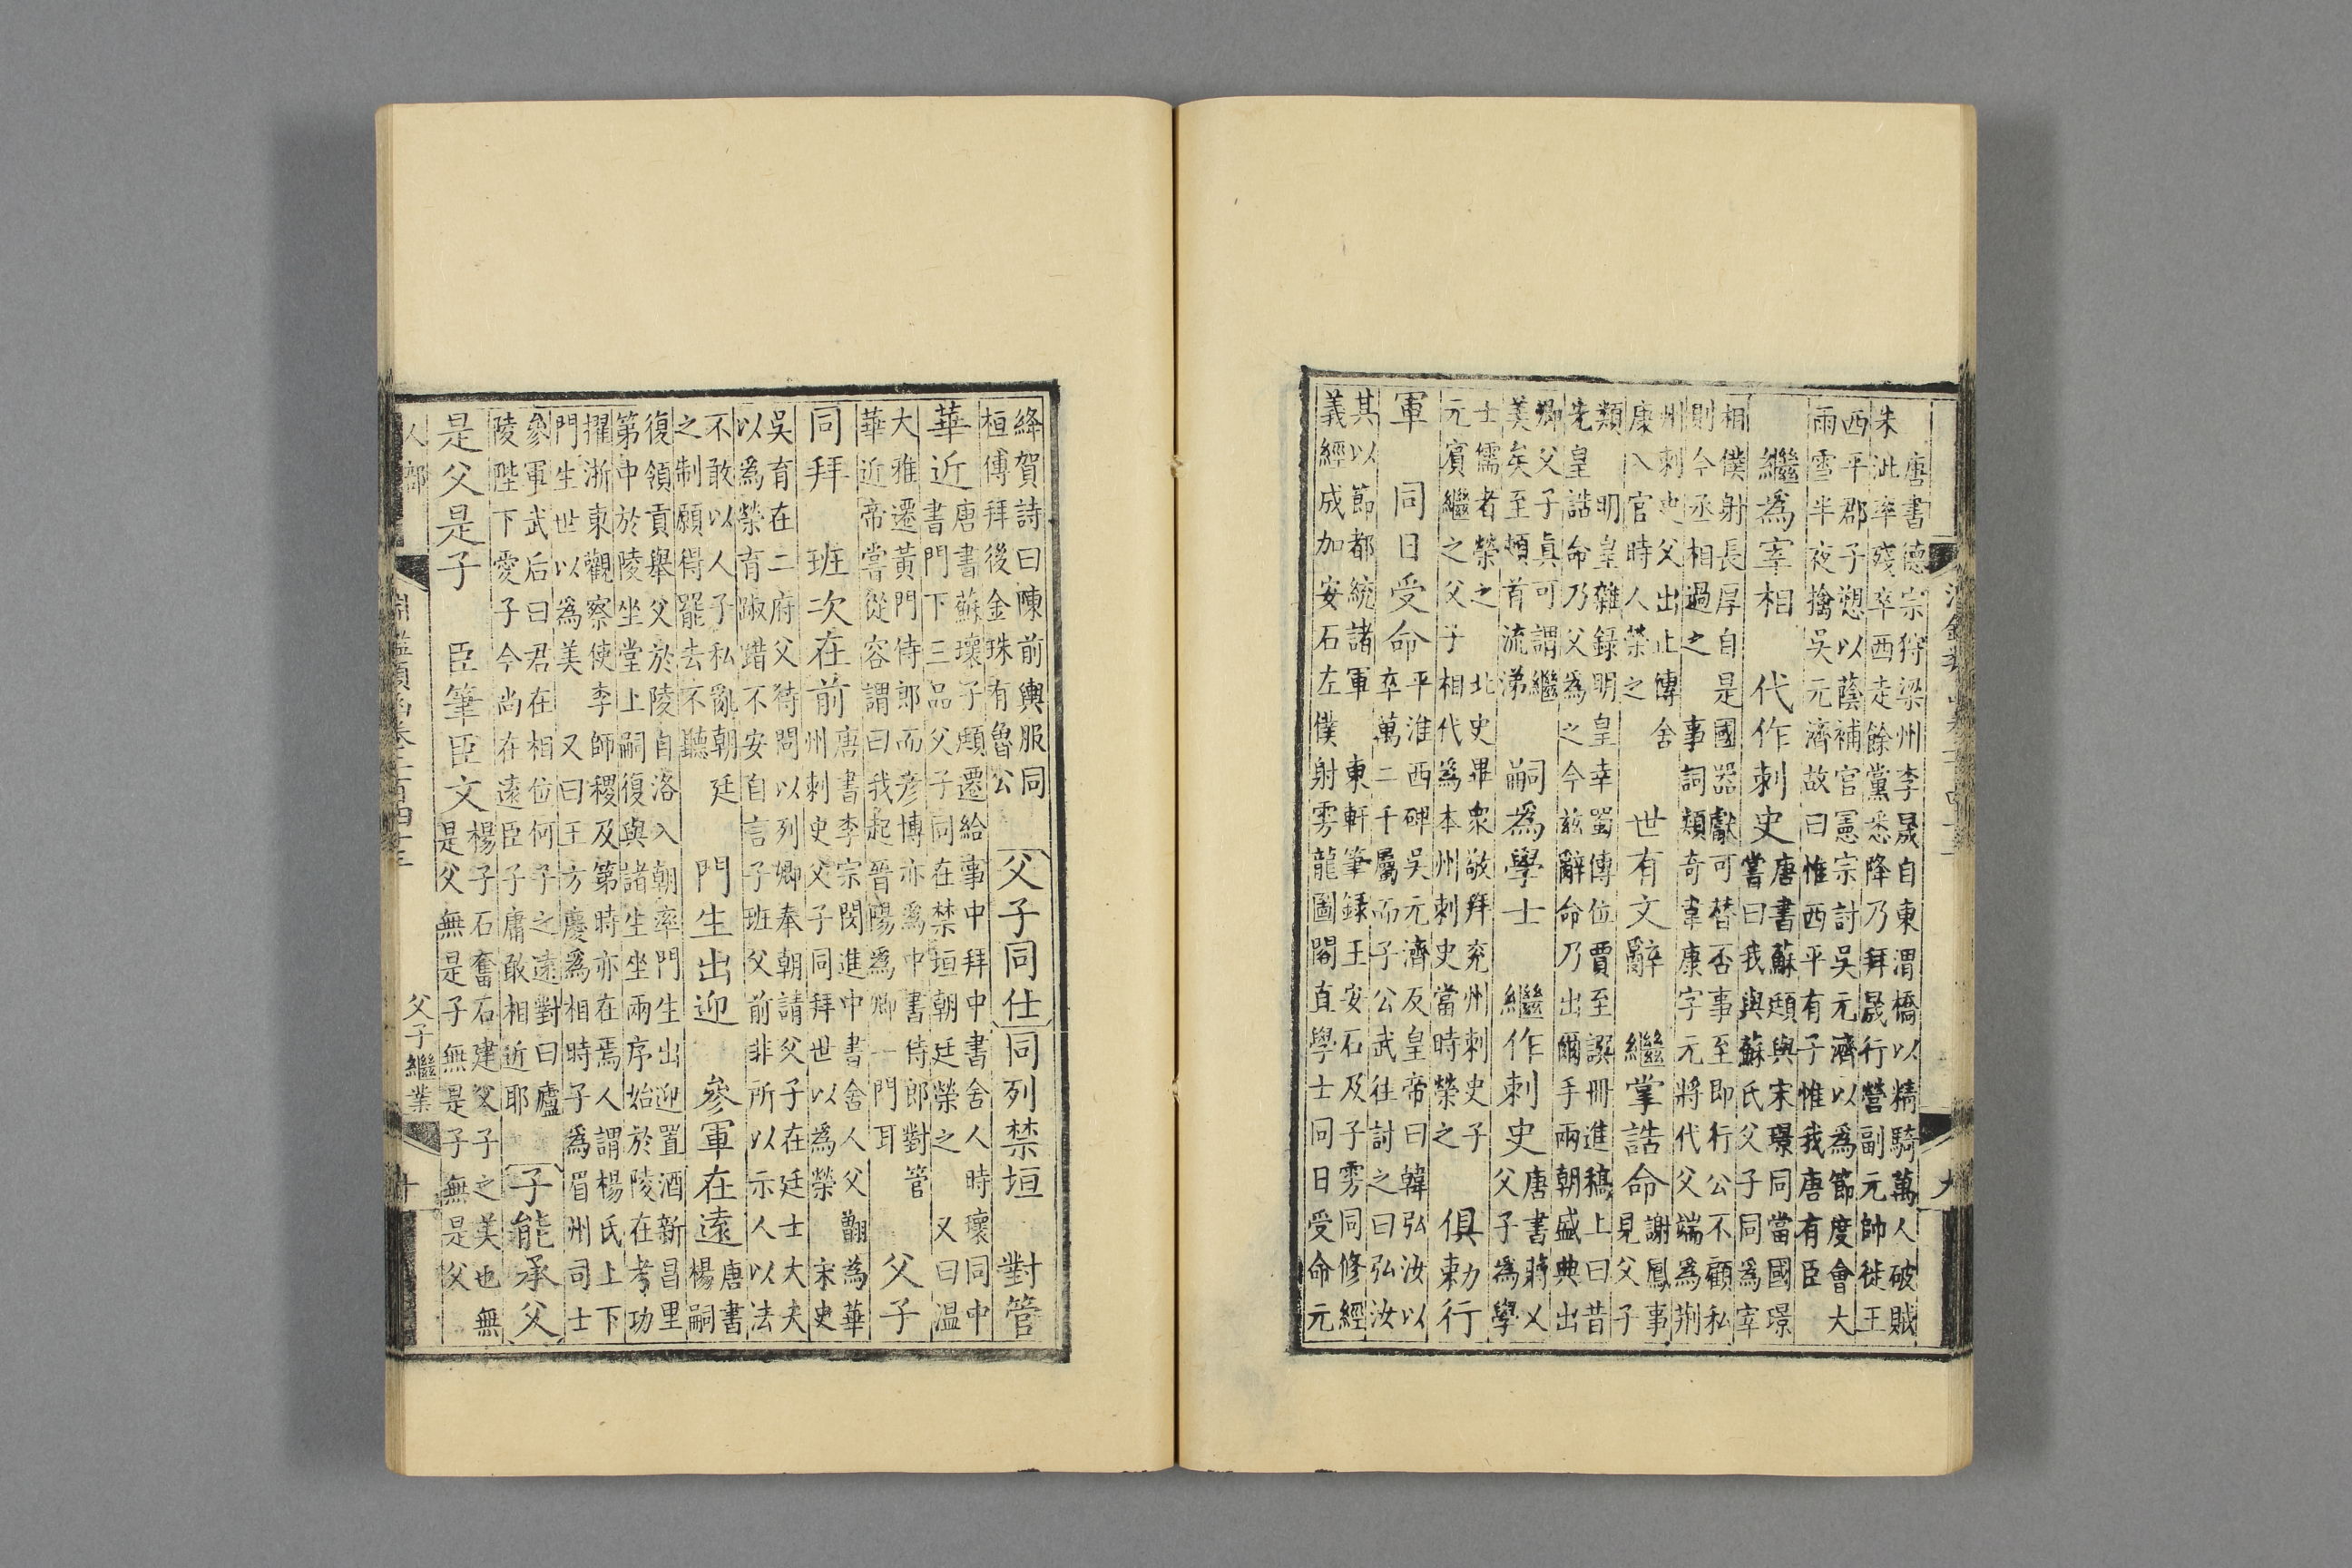 唐書德宗狩梁州李晟自東渭橋以精騎萬人破賊
朱泚率殘卒西走餘黨悉降乃拜晟行營副元帥徙王
西平郡子愬以蔭補官憲宗討吳元濟以為節度會大
雨雪半夜擒吳元濟故曰惟西平有子惟我唐有臣
繼為宰相　代作刺史
唐書蘇頲與宋璟同當國璟
嘗曰我與蘇氏父子同為宰
相僕射長厚自是國器獻可替否事至即行公不顧私
則今丞相過之　事詞類奇韋康字元將代父端為荊
州刺史父出止傳舍
康入官時人榮之
世有文辭　繼掌誥命
謝鳳事
見父子
類　明皇雜録明皇幸蜀傳位賈至譔冊進稿上曰昔
先皇誥命乃父為之今玆辭命乃出爾手兩朝盛典出
卿父子真可謂繼
美矣至頓首流涕
嗣為學士　繼作刺史
唐書蔣乂
父子為學
士儒者榮之　北史畢衆敬拜兖州刺史子
元賓繼之父子相代為本州刺史當時榮之
俱勅行
軍　同日受命
平淮西碑吳元濟反皇帝曰韓弘汝以
卒萬二千屬而子公武往討之曰弘汝
其以節都統諸軍　東軒筆録王安石及子雱同修經
義經成加安石左僕射雱龍圖閣直學士同日受命元
絳賀詩曰陳前輿服同
桓傅拜後金珠有魯公
父子同仕　同列禁垣　對管
華近
唐書蘇瓌子頲遷給事中拜中書舍人時瓌同中
書門下三品父子同在禁垣朝廷榮之　又曰温
大雅遷黃門侍郎而彦博亦為中書侍郎對管
華近帝嘗從容謂曰我起晉陽為卿一門耳
父子
同拜　班次在前
唐書李宗閔進中書舍人父䎖為華
州刺史父子同拜世以為榮　宋史
吳育在二府父待問以列卿奉朝請父子在廷士大夫
以為榮育踧踖不安自言子班父前非所以示人以法
不敢以人子私亂朝廷
之制願得罷去不聽
門生出迎　參軍在遠
唐書
楊嗣
復領貢舉父於陵自洛入朝率門生出迎置酒新昌里
第中於陵坐堂上嗣復與諸生坐兩序始於陵在考功
擢浙東觀察使李師稷及第時亦在焉人謂楊氏上下
門生世以為美　又曰王方慶為相時子為眉州司士
參軍武后曰君在相位何子之遠對曰廬
陵陛下愛子今尚在遠臣子庸敢相近耶
子能承父
是父是子　臣筆臣文
楊子石奮石建父子之美也無
是父無是子無是子無是父
人部
淵鑑類函卷二百四十三
父子繼業
十